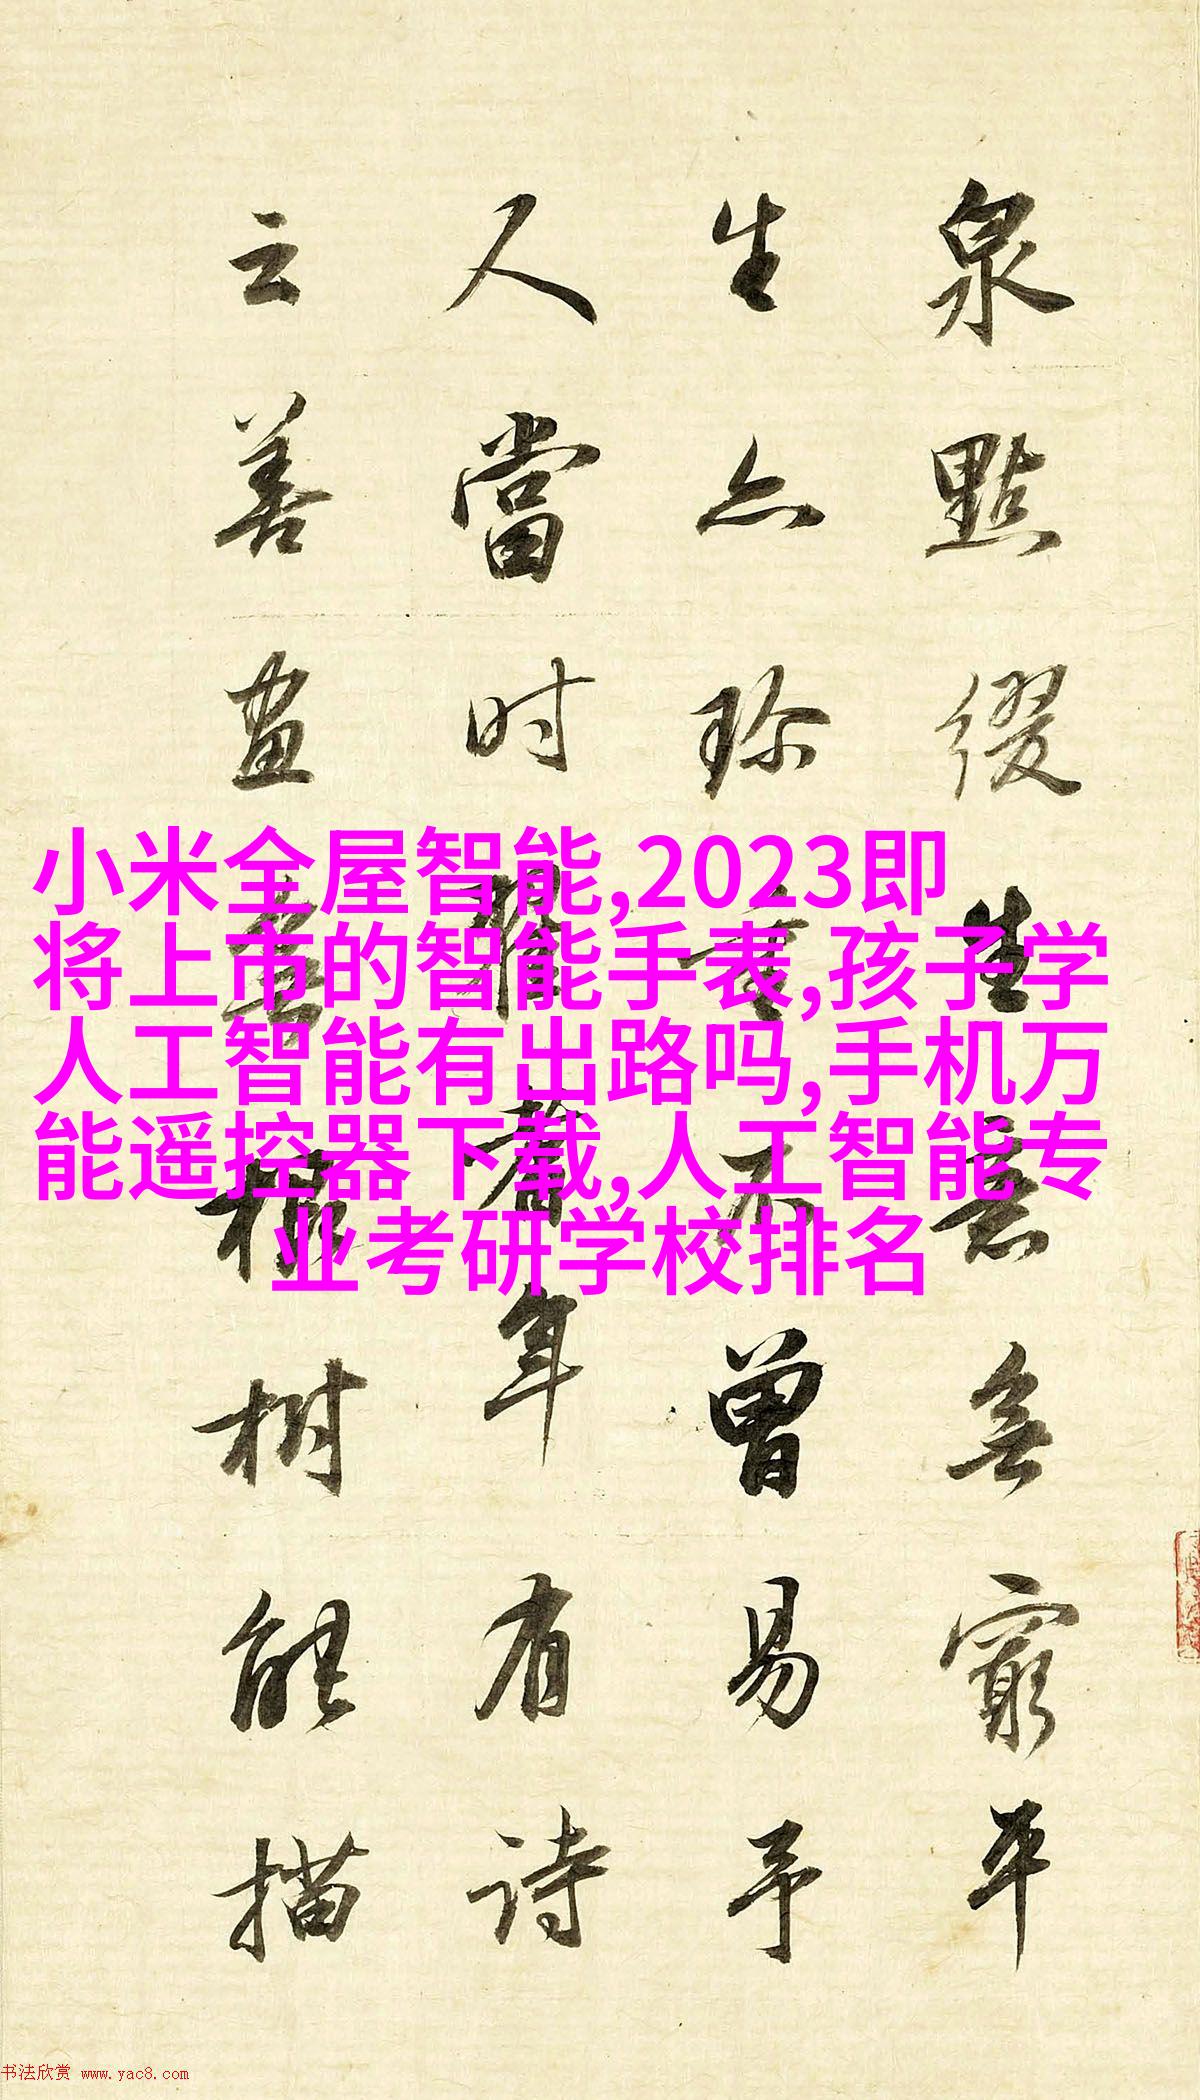 泉點缀生意無窮平
生亦珍重不曾易予
人當时年有诗
云善画树能描
小米全屋智能,2023即
将上市的智能手表,孩子学
人工智能有出路吗,手机万
能遥控器下载,人工智能专
业考研学校排名
书法欣赏 www.yac8.com